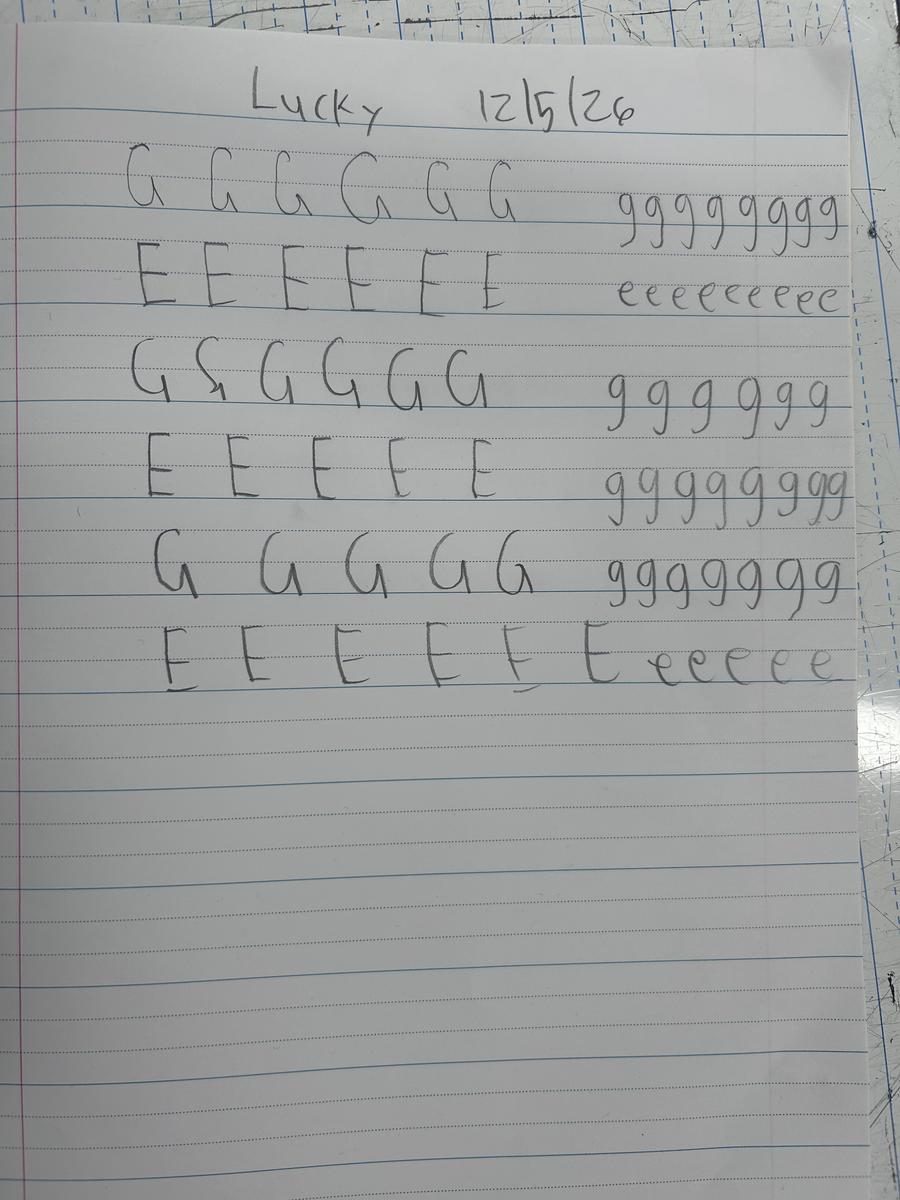 Lucky 12/5/26
G G G G G G ggggggggg
E E E E E E eeeeeeeee
G G G G G G g g g g g g
E E E E E ggggggggg
G G G G G gggggggg
E E E E E E e e e e e